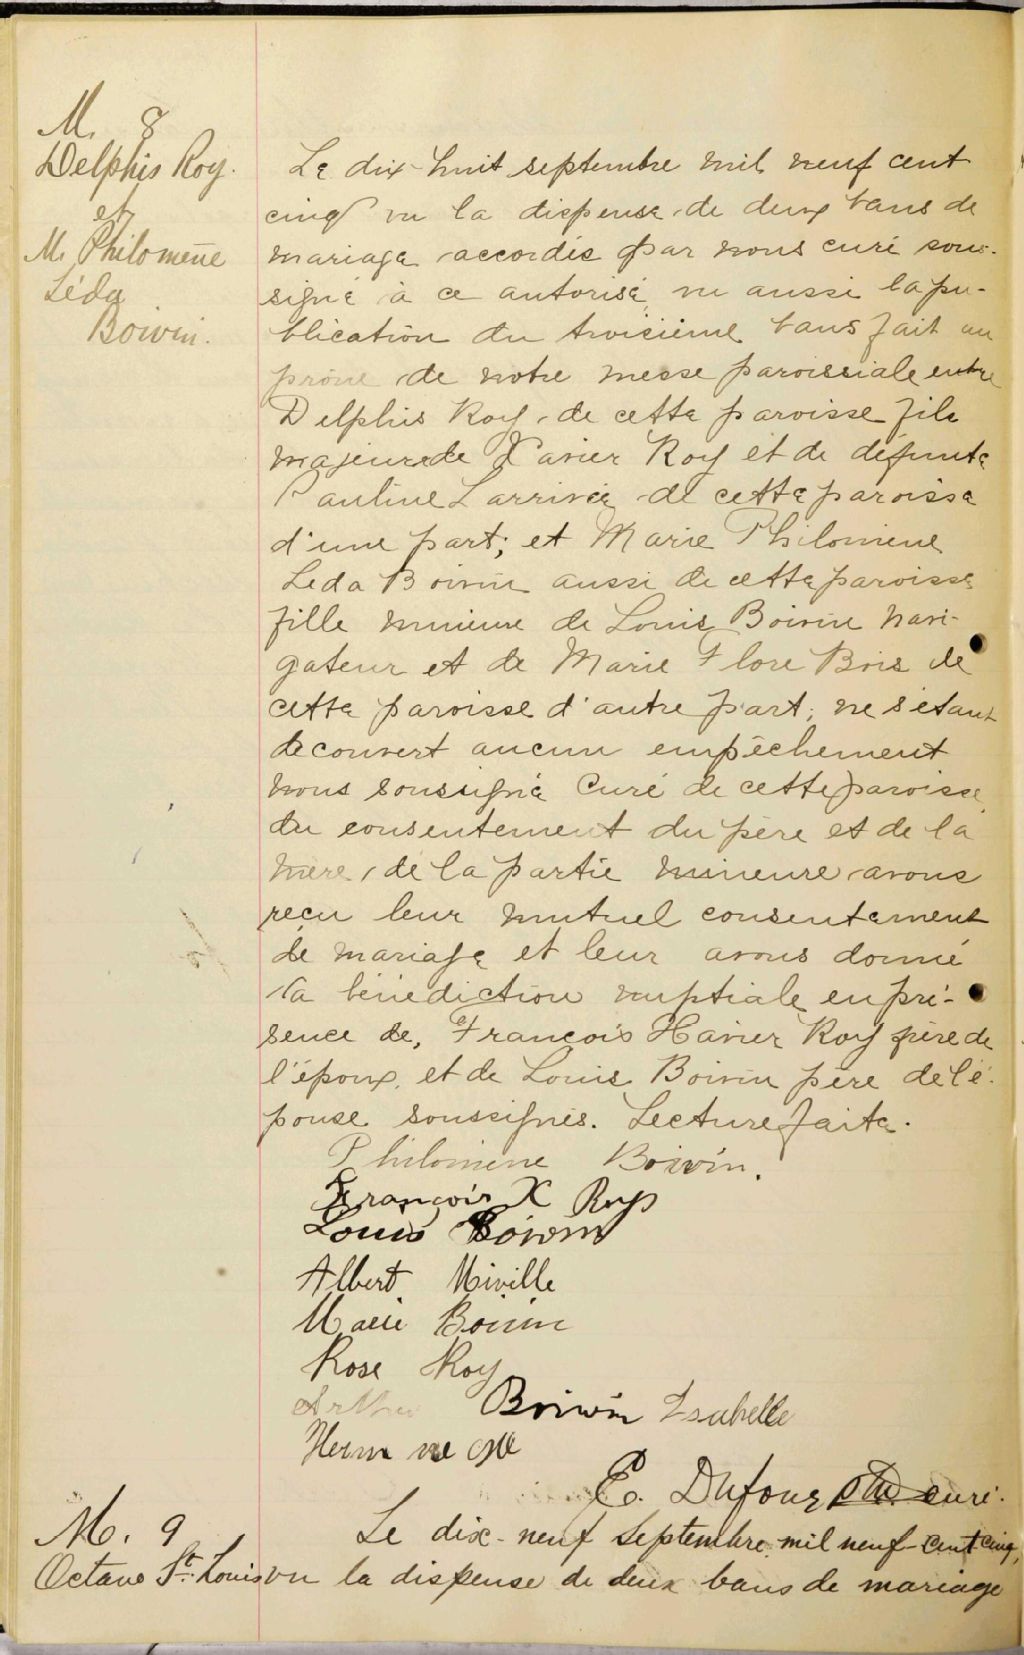 M. 8
Delphis Roy.
et
M. Philomène
Léda
Boivin.
Le dix-huit septembre mil neuf cent
cinq vu la dispense de deux bans de
mariage accordée par nous curé sous-
signé à ce autorisé vu aussi la pu-
blication du troisième bans fait au
prône de notre messe paroissiale entre
Delphis Roy, de cette paroisse fils
majeur de Xavier Roy et de défunte
Pauline Larrivée de cette paroisse
d'une part; et Marie Philomène
Leda Boivin aussi de cette paroisse
fille mineure de Louis Boivin navi-
gateur et de Marie Flore Bois de
cette paroisse d'autre part; ne s'étant
découvert aucun empêchement
nous soussigné Curé de cette paroisse,
du consentement du père et de la
mère, de la partie mineure avons
reçu leur mutuel consentement
de mariage et leur avons donné
la bénédiction nuptiale en pré-
sence de, François Xavier Roy père de
l'époux, et de Louis Boivin père de l'é-
pouse soussignés. Lecture faite.
Philomène Boivin.
François X Roy
Louis Boivin
Albert Miville
Marie Boivin
Rose Roy
Arthur Boivin Isabelle
E. Dufour ptre curé.
M. 9
Octave St. Louis
Le dix-neuf Septembre mil neuf-cent cinq,
vu la dispense de deux bans de mariage